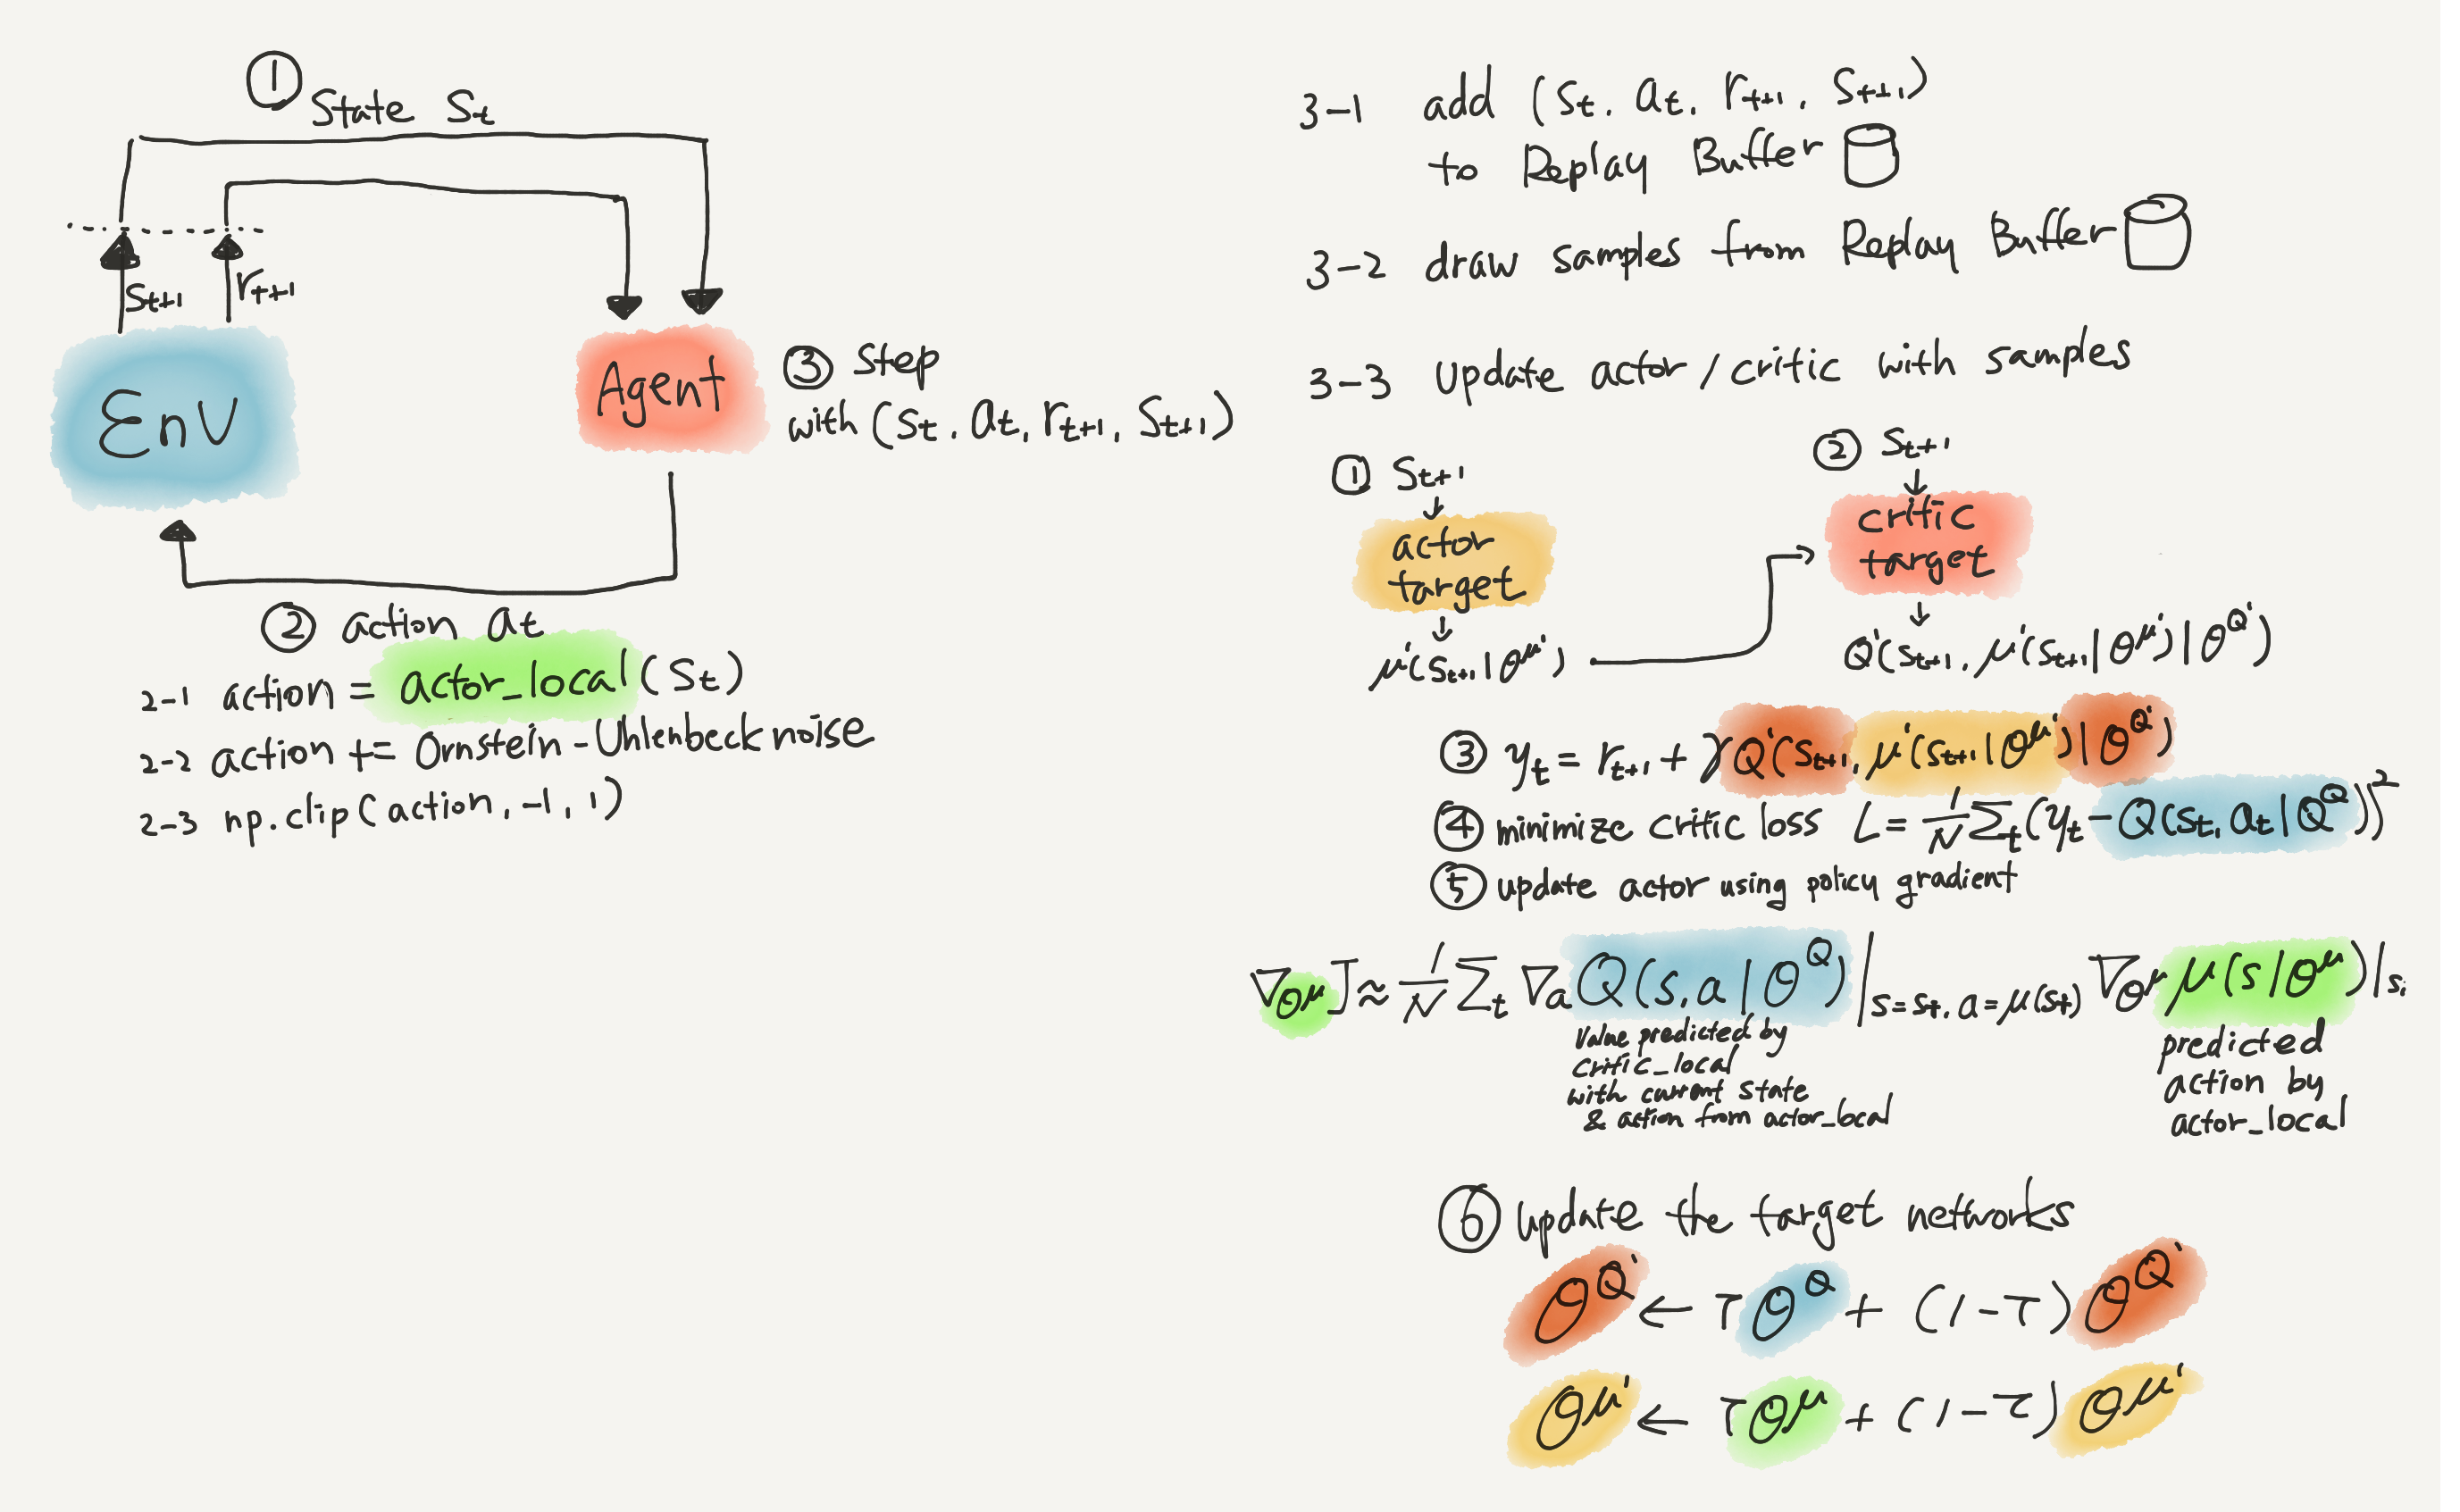 ① State St
St+1 rt+1
Env
Agent
③ Step
with (St, at, rt+1, St+1)
② action at
2-1 action = actor_local(St)
2-2 action += Ornstein-Uhlenbeck noise
2-3 np.clip(action, -1, 1)
3-1 add (St, at, rt+1, St+1)
to Replay Buffer
3-2 draw samples from Replay Buffer
3-3 update actor/critic with samples
① St+1
actor
target
μ'(St+1|θ^μ')
② St+1
critic
target
Q'(St+1, μ'(St+1|θ^μ')|θ^Q')
③ yt = rt+1 + γQ'(St+1, μ'(St+1|θ^μ')|θ^Q')
④ minimize critic loss L = 1/N Σt(yt - Q(St, at|θ^Q))²
⑤ update actor using policy gradient
∇θ^μ J ≈ 1/N Σt ∇a Q(s, a|θ^Q)|s=st, a=μ(st) ∇θ^μ μ(s|θ^μ)|s.
Value predicted by
critic_local
with current state
& action from actor_local
predicted
action by
actor_local
⑥ update the target networks
θ^Q' ← τθ^Q + (1-τ)θ^Q'
θ^μ' ← τθ^μ + (1-τ)θ^μ'